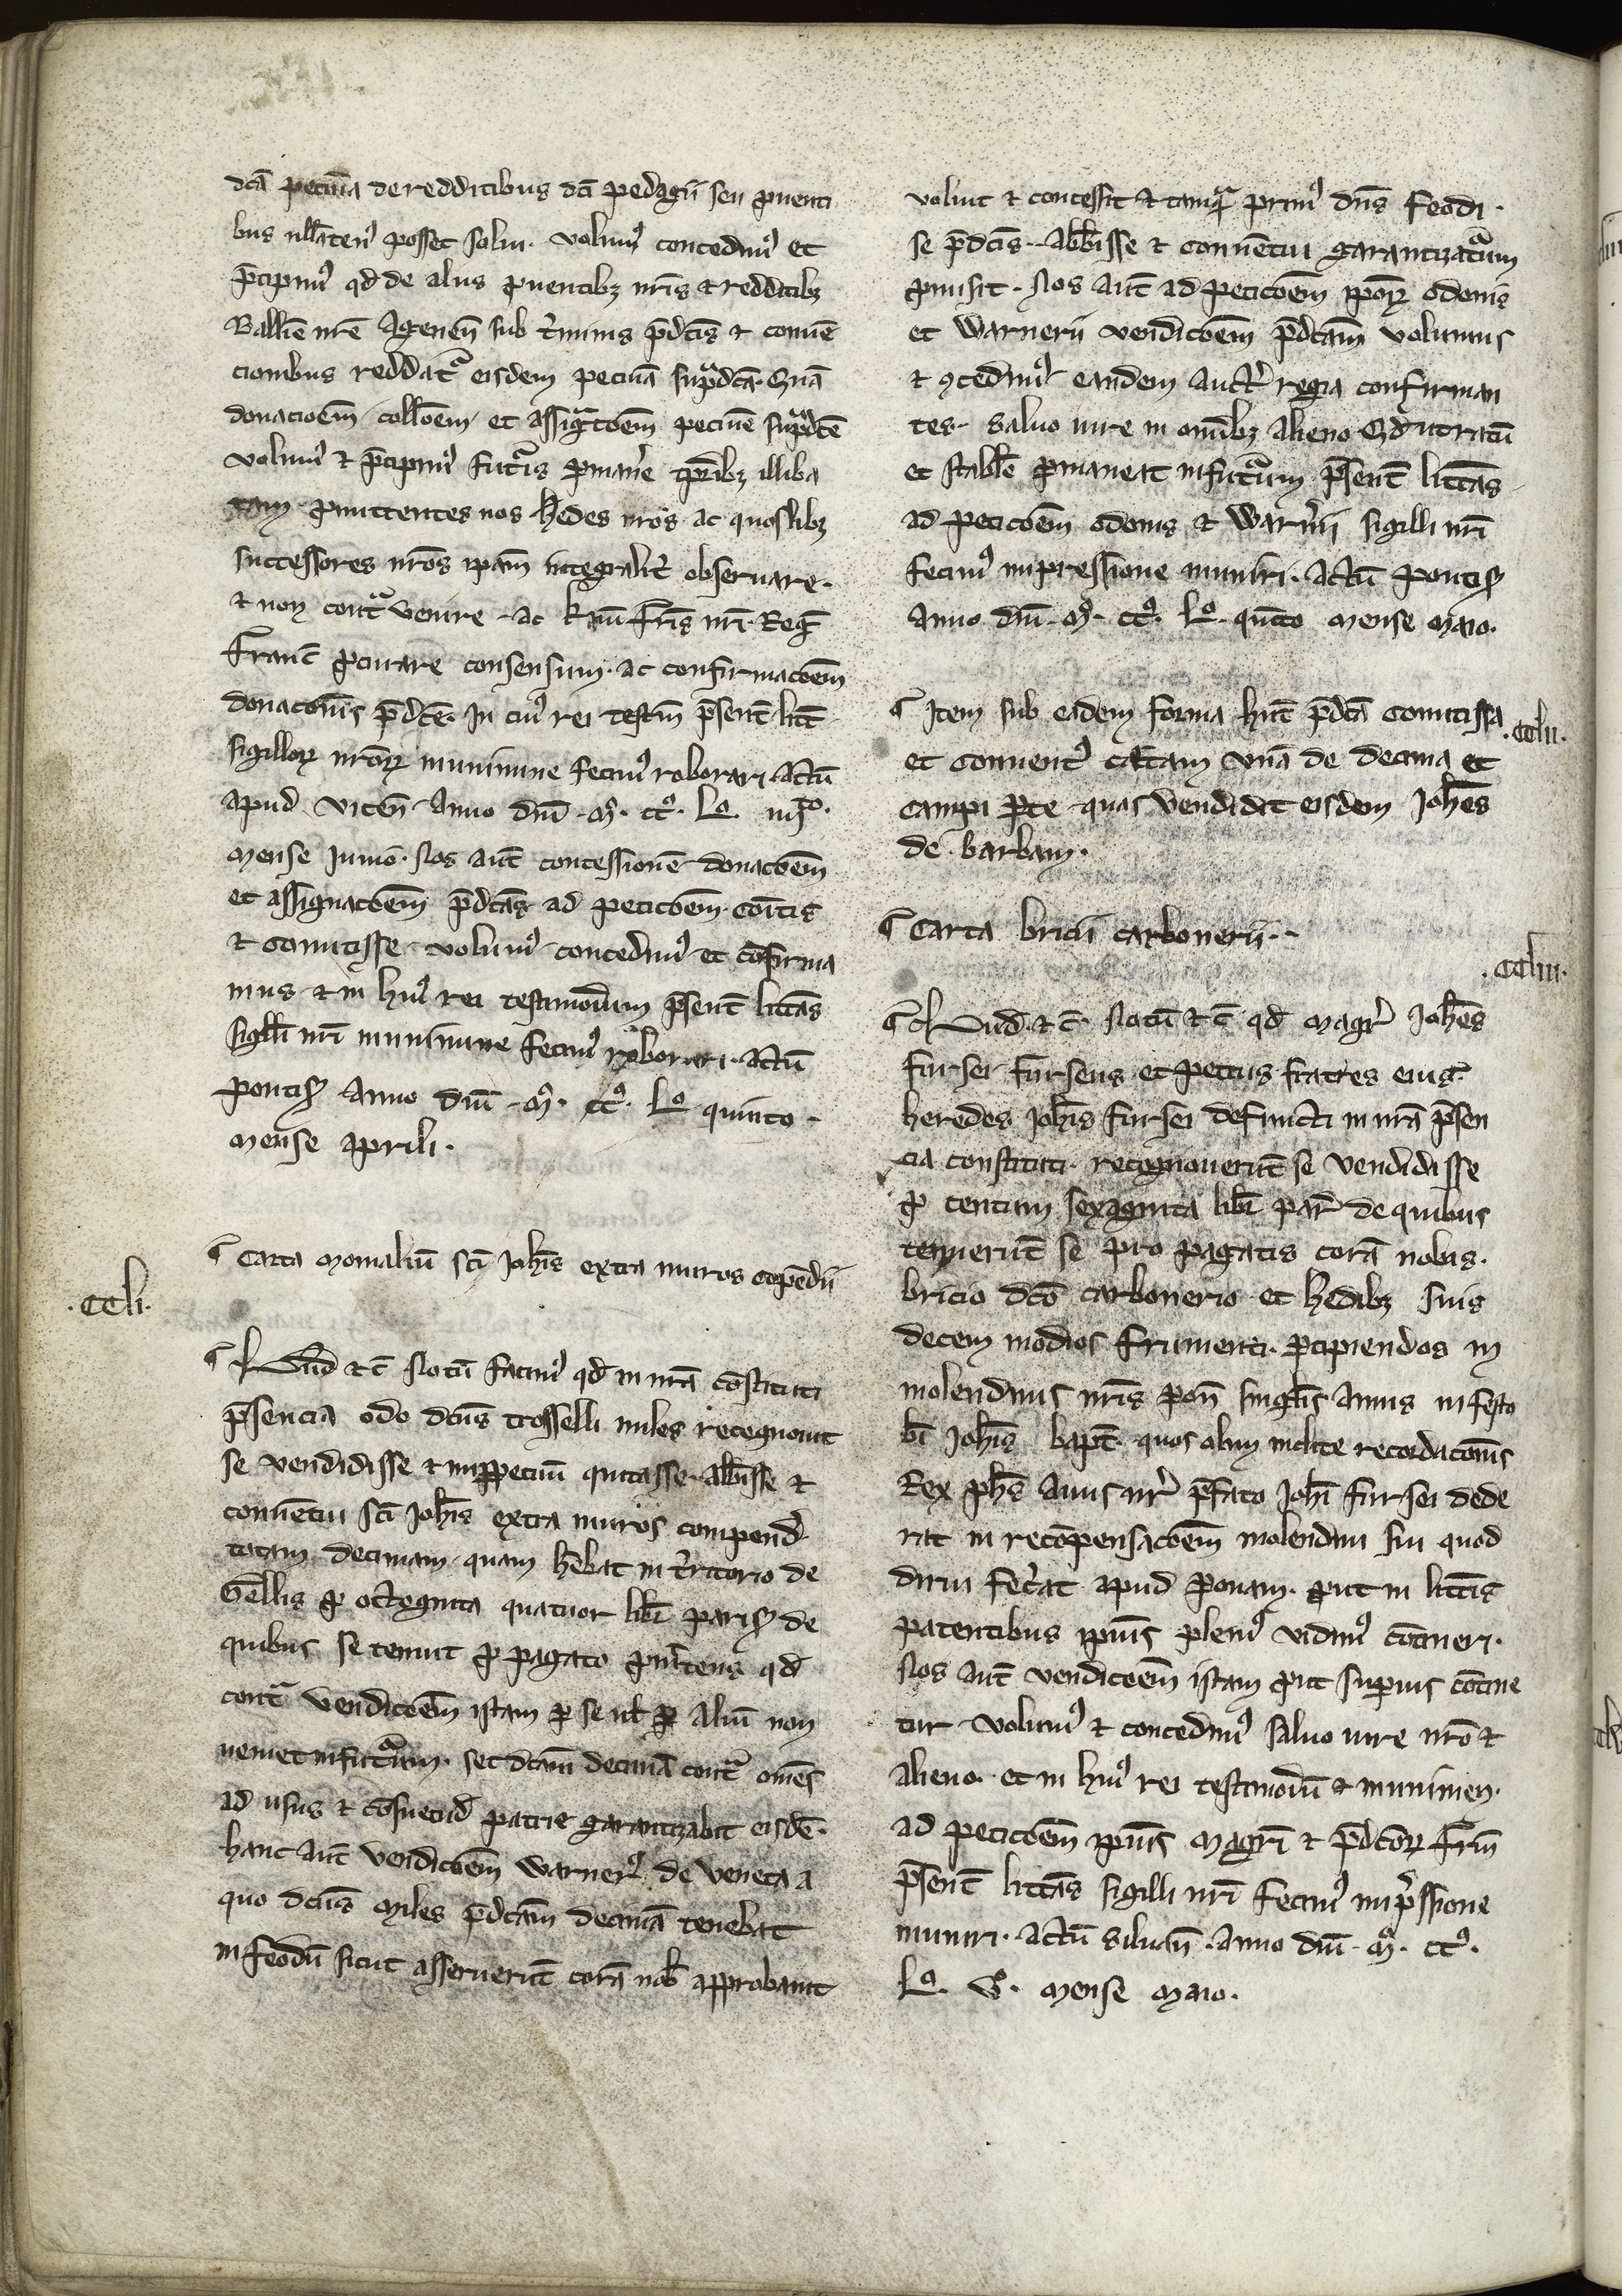 dc̄a pecunīa de redditibus dc̄i pedagii seu ꝓuenti
bus ull̄atenꝰ posset solui. volumꝰ concedimꝰ et
p̄cipimꝰ qd̄ de aliis ꝓuentibꝫ nr̄is ⁊ redditibꝫ
Balliē nr̄e Agenen̄ sub t̾minis p̄dc̄is ⁊ conuē
cionibus reddat᷑ eisdem pecunīa supͣdc̄a. Quā
donacioēm coll̄oem et assignͣcōem pecunīe supͣdc̄e
volumꝰ ⁊ p̄cipimꝰ futͥris ꝑman̾e tꝑibꝫ illiba
tam ꝓmittentes nos h̾edes nr̄os ac quoslibꝫ
successores nr̄os ip̄am integralit̾ obseruare.
⁊ non contͣ venire. ac kr̄mi fr̄is nr̄i Reḡ
Franc̄ ꝓcurare consensum. ac confirmacōem
donacōnis p̄dc̄e. In cuiꝰ rei testim̄ p̄sent̄ litt̄
sigilloꝝ nr̄oꝝ munimine fecimꝰ roborari. Actū
apud vicen̄ Anno dn̄i. m̊. cc̊. L̊. iiij̊.
mense Junio. Nos aut̄ concessionē donacōem
et assignacōem p̄dc̄as ad peticōem com̄itis
⁊ comitisse volumꝰ concedimꝰ et cōfirma
mus ⁊ in huiꝰ rei testimoniūm p̄sent̄ litt̄as
sigilli nr̄i munimine fecimꝰ roborari. Actū
pontiꝭ Anno dn̄i. m̊. cc̊. L̊ quinto.
mense aprili.
¶ Carta monialiū sc̄i Joh̄is extra muros cōpēdii
.ccli.
¶ Lud̄ ⁊ c̄ Notū facimꝰ qd̄ in nr̄a cōstituti
p̄sencia odo dc̄us trosselli miles recognouit
se vendidisse ⁊ imꝑpetuū quitasse. abb̄isse ⁊
conuētui sc̄i Joh̄is extra muros compend̾
totam decimam quam h̄ebat in t̾ritorio de
Gellis ꝓ octoginta quatuor libr̄ pariꝭ de
quibus se tenuit ꝓ pagato ꝓmit̾tens qd̄
contͣ vendicōem istam ꝑ se ul̄ ꝑ aliū non
ueniet in futͣrum. set dc̄am decimā contͣ om̄es
ad usus ⁊ cōsuetud̄ patrie garantizabit eisdē.
hanc aut̄ vendicōem warnerꝰ de veneta a
quo dc̄us miles p̄dc̄am decimā tenebat
in feodū sicut asseruerūt corā nob̄ approbauit
voluit ⁊ concessit ⁊ tamqͣ primꝰ dn̄s feodi.
se p̄dc̄is. Abb̄isse ⁊ conuētui garantizatͣum
ꝓmisit. Nos aut̄ ad peticōem ip̄oꝝ odonis
et warnerii vendicōem p̄dc̄am volumus
⁊ ꝯcedimꝰ eandem auctͤ regia confirman
tes. saluo iure in om̄ibꝫ alieno. Qd̄ ut ratū
et stabīle ꝑmaneat in futͣrum p̄sent̄ litt̄as
ad peticōem odonis ⁊ warn̾ii sigilli nr̄i
fecimꝰ impressione muniri. Actū pontiꝭ
Anno dn̄i. m̊. cc̊. L̊. quīto mense maio.
¶ Item sub eadem forma hn̄t p̄dc̄a comitissa
.cclii.
et conuentꝰ cartam vnā de decima et
campi ꝑte quas vendidit eisdem Joh̄es
de barbam.
¶ Carta bricii carbonerii..
.ccliii.
¶ Lud̄ ⁊ c̄. Notū ⁊ c̄ qd̄ magr̄ Joh̄es
fursei furseus et petrus fratres eius
heredes Joh̄is fursei defuncti in nr̄a p̄sen
cia constituti. recognouerūt se vendidisse
ꝓ centum sexaginta libr̄ par̄ de quibus
tenuerūt se pro pagatis corā nobis.
bricio dc̄o carbonerio et h̾edibꝫ suis
decem modios frumenti. ꝑcipiendos in
molendinis nr̄is ꝑon̄ singl̄is annis in festo
bi̅ Joh̄is bapt̄. quos olim inclite recordacōnis
Rex ph̄s auus nr̄ p̄fato Joh̄i fursei dede
rat in recōpensacōem molendini sui quod
dirui fec̾at apud ꝑonam. ꝓut in litt̄is
patentibus ip̄ius pleniꝰ vidimꝰ cōtineri.
Nos aut̄ vendicōem istam ꝓut suꝑius cōtine
tur volumꝰ ⁊ concedimꝰ saluo iure nr̄o ⁊
alieno. et in huiꝰ rei testimoniū ⁊ munimen.
ad peticōem ip̄ius magrī ⁊ p̄dc̄oꝝ fr̄um
p̄sent̄ litt̄as sigilli nr̄i fecimꝰ imp̄ssione
muniri. Actū siluan̄. Anno dn̄i. m̊. cc̊.
L̊. v̊. mense maio.